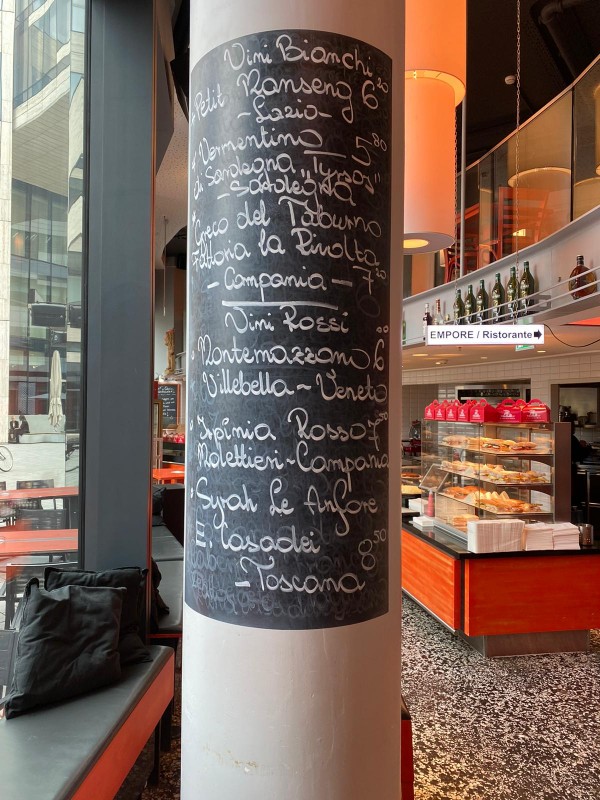 Vini Bianchi
Petit Manseng 6 20
- Lazio -
Vermentino 5 80
di Sardegna "Tyrsos"
- Sardegna
Greco del Taburno
Fattoria la Rivolta
- Campania - 7 20
Vini Rossi
Montemazzano 6 00
Villebella - Veneto
Irpinia Rosso 7 50
Molettieri - Campania
Syrah Le Anfore
E. Casadei 8 50
- Toscana
EMPORE / Ristorante